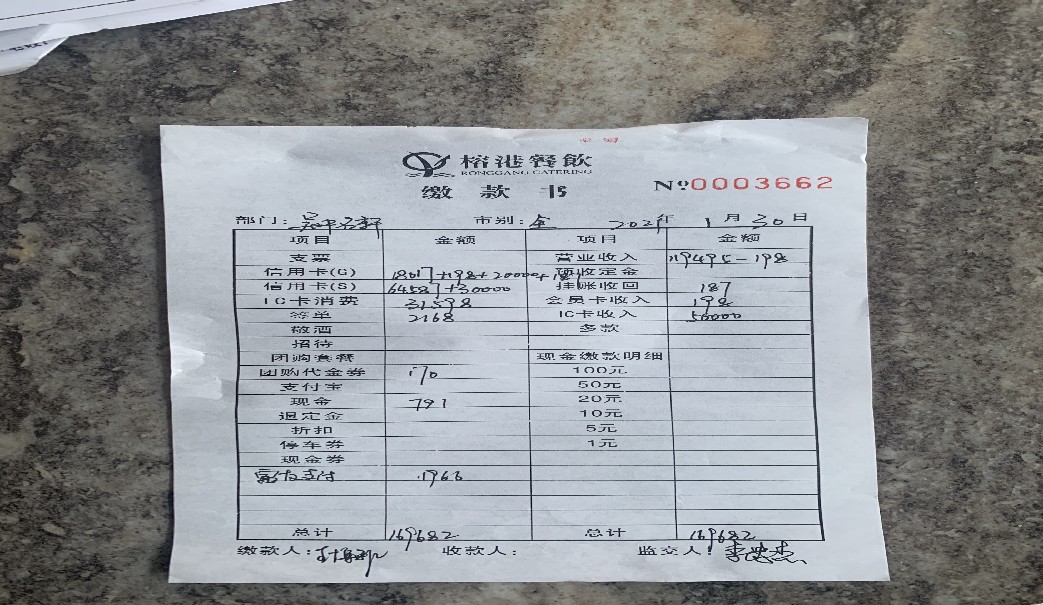 榕港餐飲
RONGGANG CATERING
缴款书
Nº0003662
部门: 市别:全 2021年1月30日
项目 金额 项目 金额
支票 营业收入 119495-198
信用卡(G) 18017+198+20000+187 预收定金
信用卡(S) 64587+30000 挂账收回 187
IC卡消费 31598 会员卡收入 198
签单 2168 IC卡收入 50000
敬酒 多款
招待
团购套餐 现金缴款明细
团购代金券 170 100元
支付宝 50元
现金 791 20元
退定金 10元
折扣 5元
停车券 1元
现金券
支付 1966
总计 169682 总计 169682
缴款人: 收款人: 监交人: